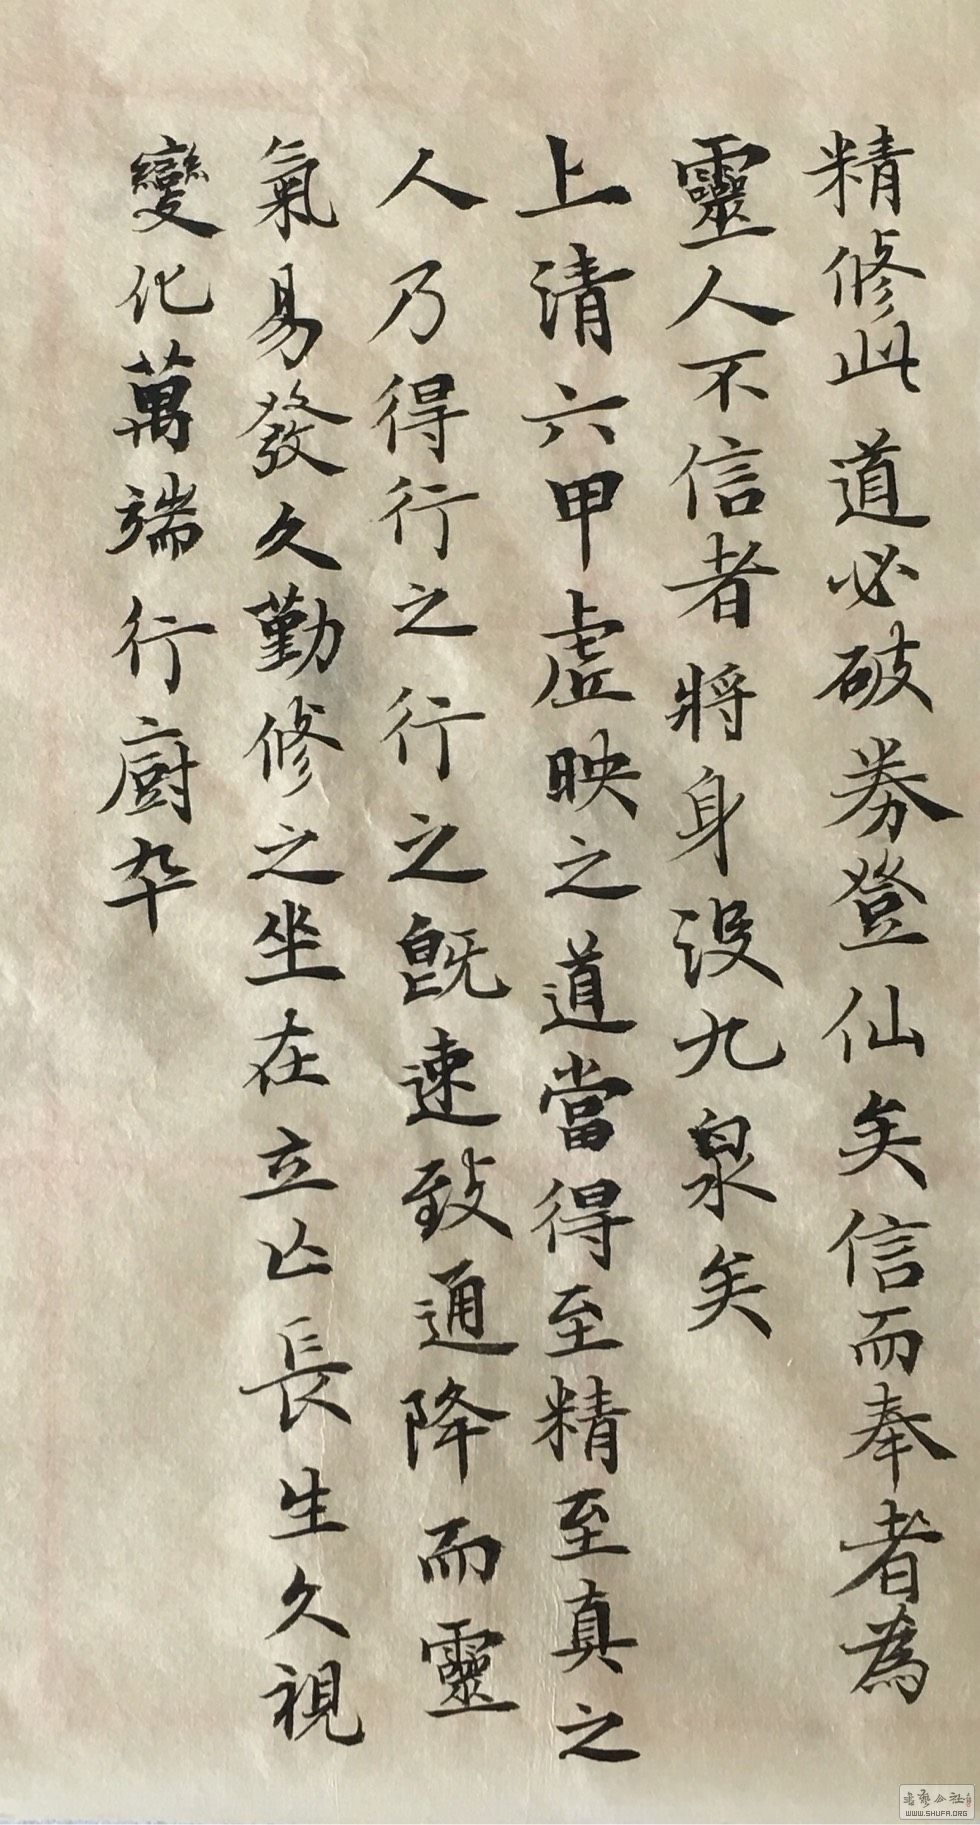 精修此道必破券登仙矣信而奉者為
靈人不信者將身沒九泉矣
上清六甲虛映之道當得至精至真之
人乃得行之行之既速致通降而靈
氣易發久勤修之坐在立亡長生久視
變化萬端行廚卒
书艺公社
WWW.SHUFA.ORG